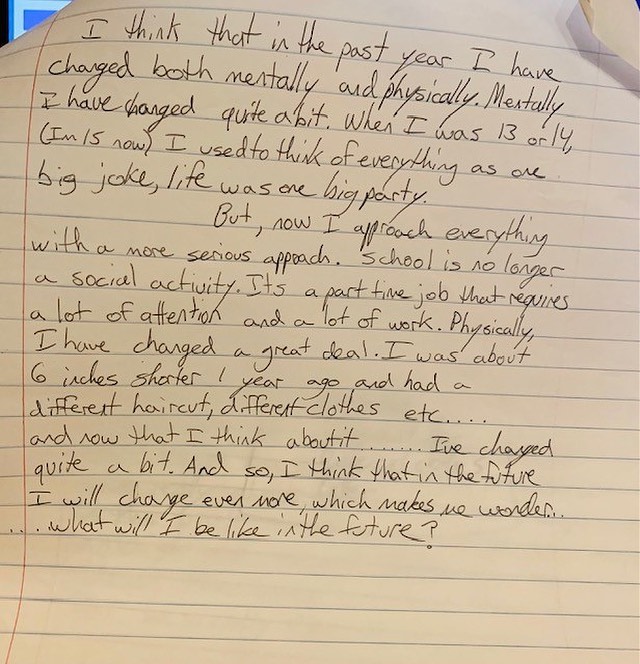 I think that in the past year I have
changed both mentally and physically. Mentally
I have changed quite a bit. When I was 13 or 14,
(Im 15 now) I used to think of everything as one
big joke, life was one big party.
But, now I approach everything
with a more serious appoach. School is no longer
a social activity. Its a part time job that requires
a lot of attention and a lot of work. Physically,
I have changed a great deal. I was about
6 inches shorter 1 year ago and had a
different haircut, different clothes etc.....
and now that I think about it ........ I've changed
quite a bit. And so, I think that in the future
I will change even more, which makes me wonder...
....what will I be like in the future?